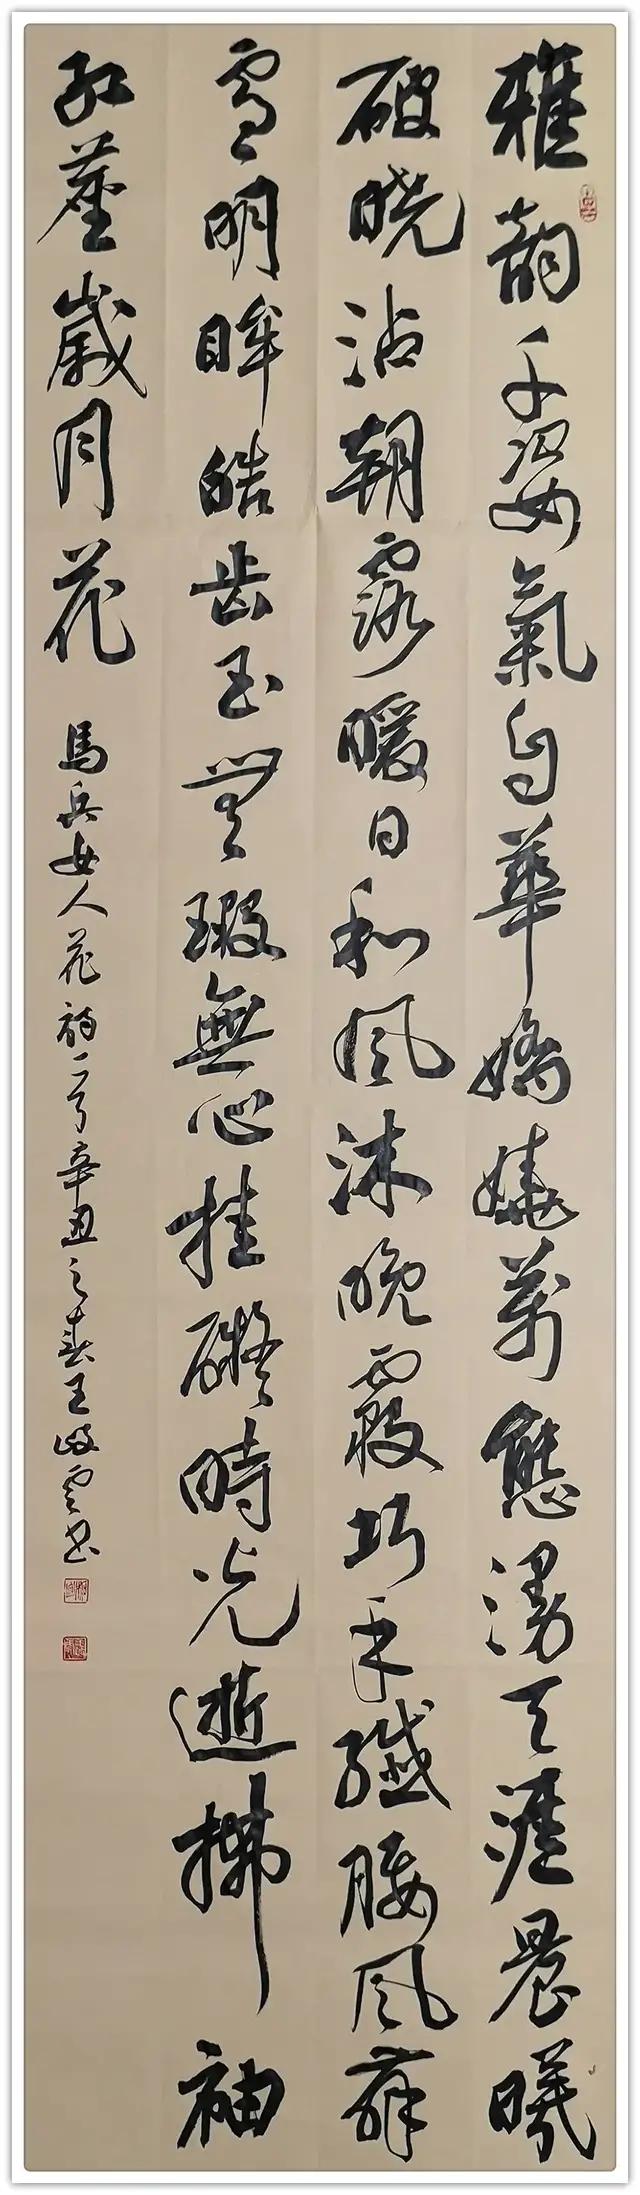 雅韵千姿氣自華嬌嬈萬態漫天涯晨曦
破晓沾朝露暖日和風沐晚霞巧手纖腰風
雪明眸皓齒玉無瑕無心挂礙時光逝拂袖
紅塵歲月花
馬兵女人花辛丑之春王岐雲書